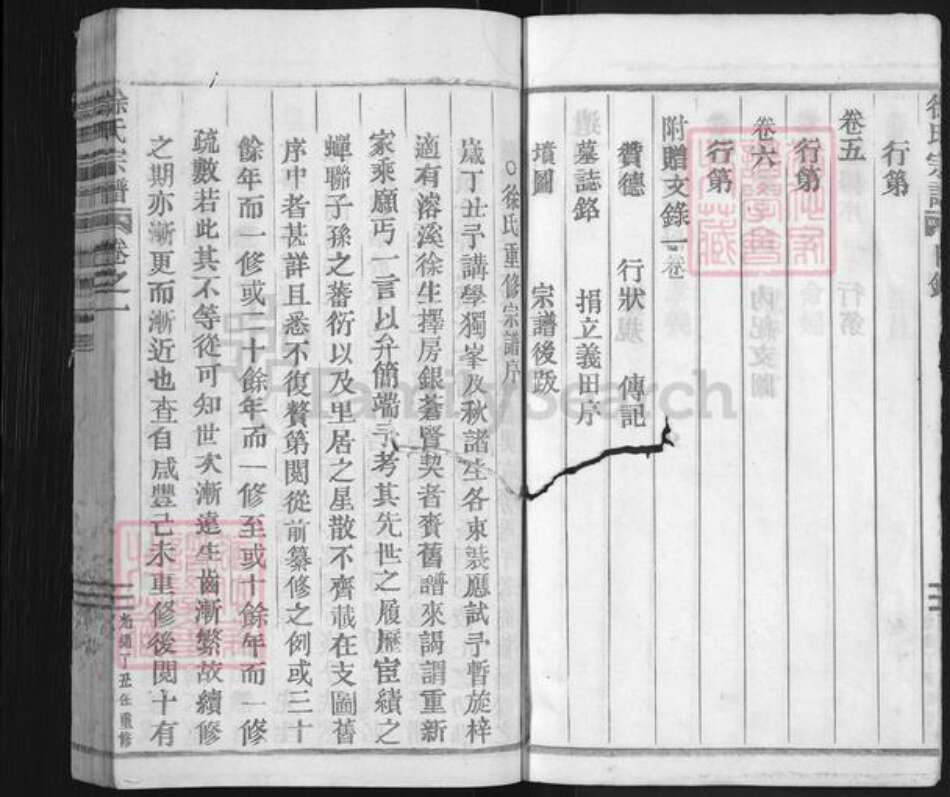 行第
卷五
行第
卷六
行第
附贈文錄一卷
贊德 行狀 傳記
墓誌銘 捐立義田序
墳圖 宗譜後跋
徐氏重修宗譜序
歲丁丑予講學獨峯及秋諸生各束裝應試予暫旋梓
適有溶溪徐生擇房銀蒼賢契者賚舊譜來謁謂重新
家乘願丐一言以弁簡端予考其先世之履歷宦績之
蟬聯子孫之蕃衍以及里居之星散不齊載在支圖舊
序中者甚詳且悉不復贅第閱從前纂修之例或三十
餘年而一修或二十餘年而一修至或十餘年而一修
疏數若此其不等從可知世次漸遠生齒漸繁故續修
之期亦漸更而漸近也查自咸豐己未重修後閱十有
徐氏宗譜 卷之一
光緒丁丑年重修
FamilySearch